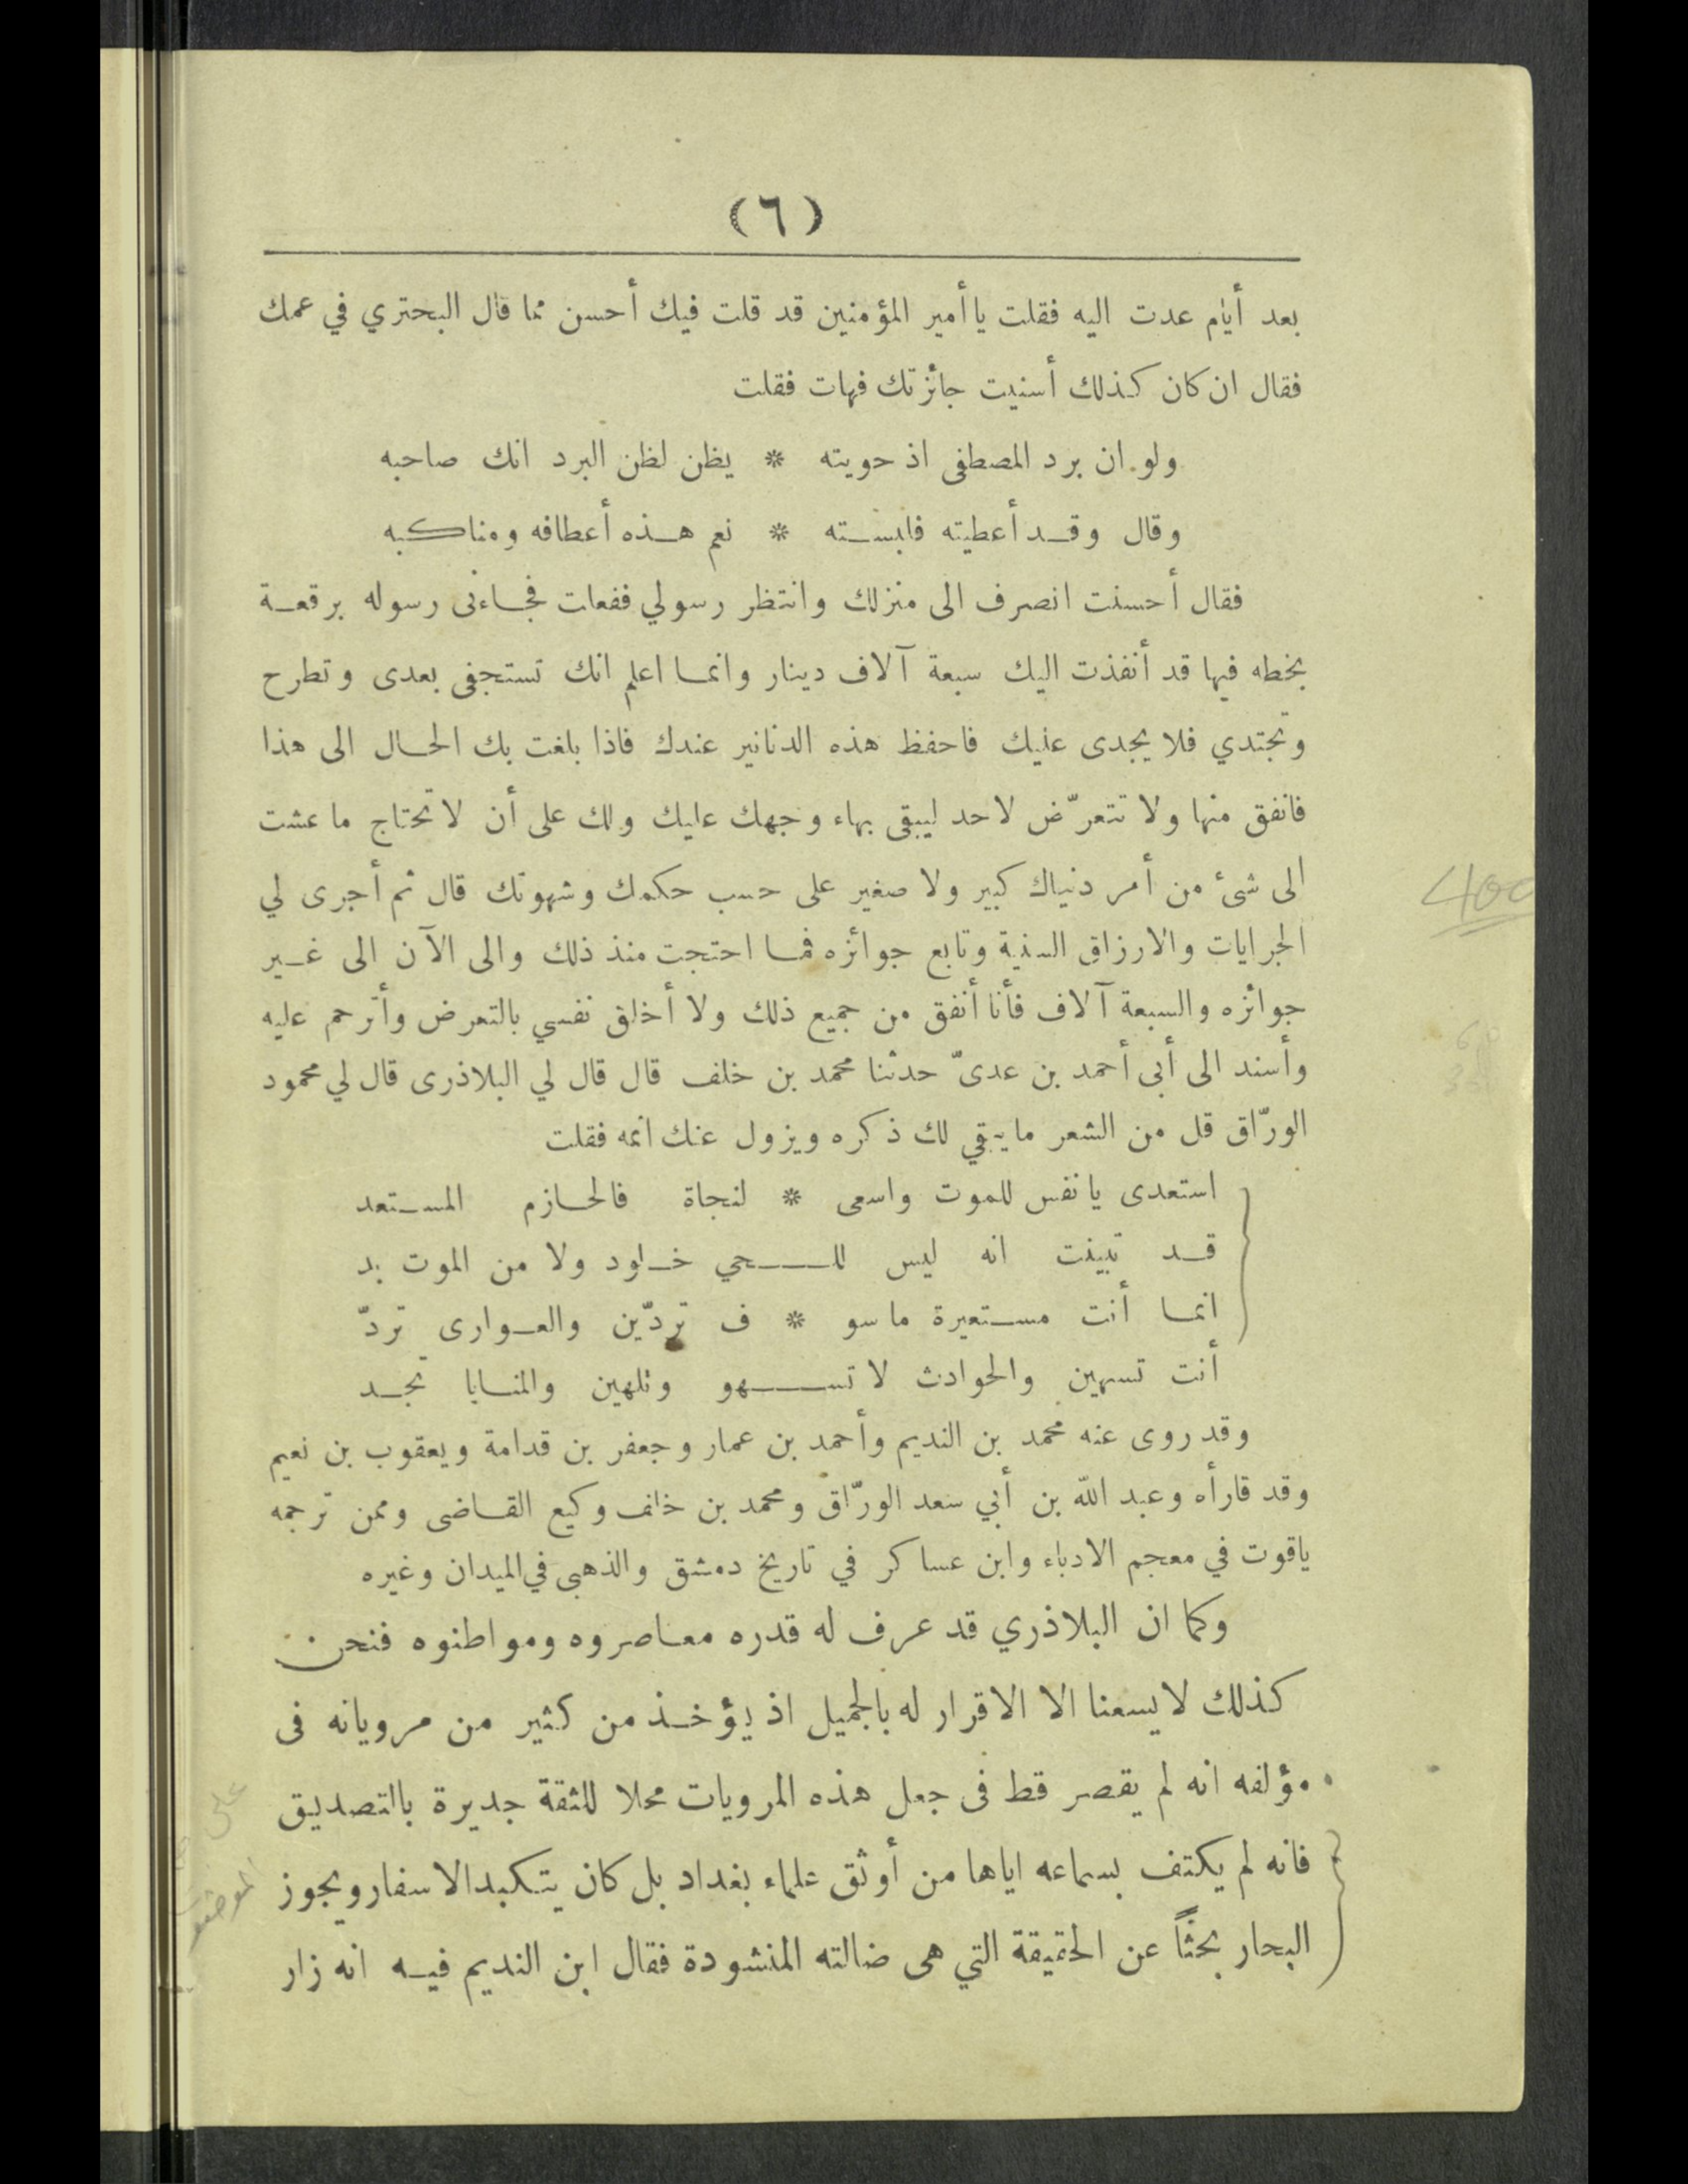 (٦)
بعد أيام عدت اليه فقلت يا أمير المؤمنين قد قلت فيك أحسن مما قال البحتري في عمك
فقال ان كان كذلك أسنيت جائزتك فهات فقلت
ولو ان برد المصطفى اذ حويته * يظن لظن البرد انك صاحبه
وقال وقد أعطيته فلبسته * نعم هذه أعطافه ومناكبه
فقال أحسنت انصرف الى منزلك وانتظر رسولي ففعلت فجاءنى رسوله برقعة
بخطه فيها قد أنفذت اليك سبعة آلاف دينار وانما اعلم انك تستجفى بعدى وتطرح
وتجتدي فلا يجدى عليك فاحفظ هذه الدنانير عندك فاذا بلغت بك الحال الى هذا
فانفق منها ولا تتعرّض لاحد ليبقى بهاء وجهك عليك ولك على أن لا تحتاج ما عشت
الى شئ من أمر دنياك كبير ولا صغير على حسب حكمك وشهوتك قال ثم أجرى لي
الجرايات والارزاق السنية وتابع جوائزه فما احتجت منذ ذلك والى الآن الى غير
جوائزه والسبعة آلاف فأنا أنفق من جميع ذلك ولا أخلق نفسي بالتعرض وأترحم عليه
وأسند الى أبى أحمد بن عدىّ حدثنا محمد بن خلف قال قال لي البلاذرى قال لي محمود
الورّاق قل من الشعر ما يبقي لك ذكره ويزول عنك اثمه فقلت
استعدى يا نفس للموت واسعى * لنجاة فالحازم المستعد
قد تبينت انه ليس للحي خلود ولا من الموت بد
انما أنت مستعيرة ما سو * ف تردّين والعوارى تردّ
أنت تسهين والحوادث لا تسهو وتلهين والمنايا تجد
وقد روى عنه محمد بن النديم وأحمد بن عمار وجعفر بن قدامة ويعقوب بن نعيم
وقد قارأه وعبد الله بن أبي سعد الورّاق ومحمد بن خلف وكيع القاضى وممن ترجمه
ياقوت في معجم الادباء وابن عساكر في تاريخ دمشق والذهبى في الميدان وغيره
وكما ان البلاذري قد عرف له قدره معاصروه ومواطنوه فنحن
كذلك لا يسعنا الا الاقرار له بالجميل اذ يؤخذ من كثير من مروياته فى
مؤلفه انه لم يقصر قط فى جعل هذه المرويات محلا للثقة جديرة بالتصديق
فانه لم يكتف بسماعه اياها من أوثق علماء بغداد بل كان يتكبد الاسفار ويجوز
البحار بحثاً عن الحقيقة التي هى ضالته المنشودة فقال ابن النديم فيه انه زار
400
على